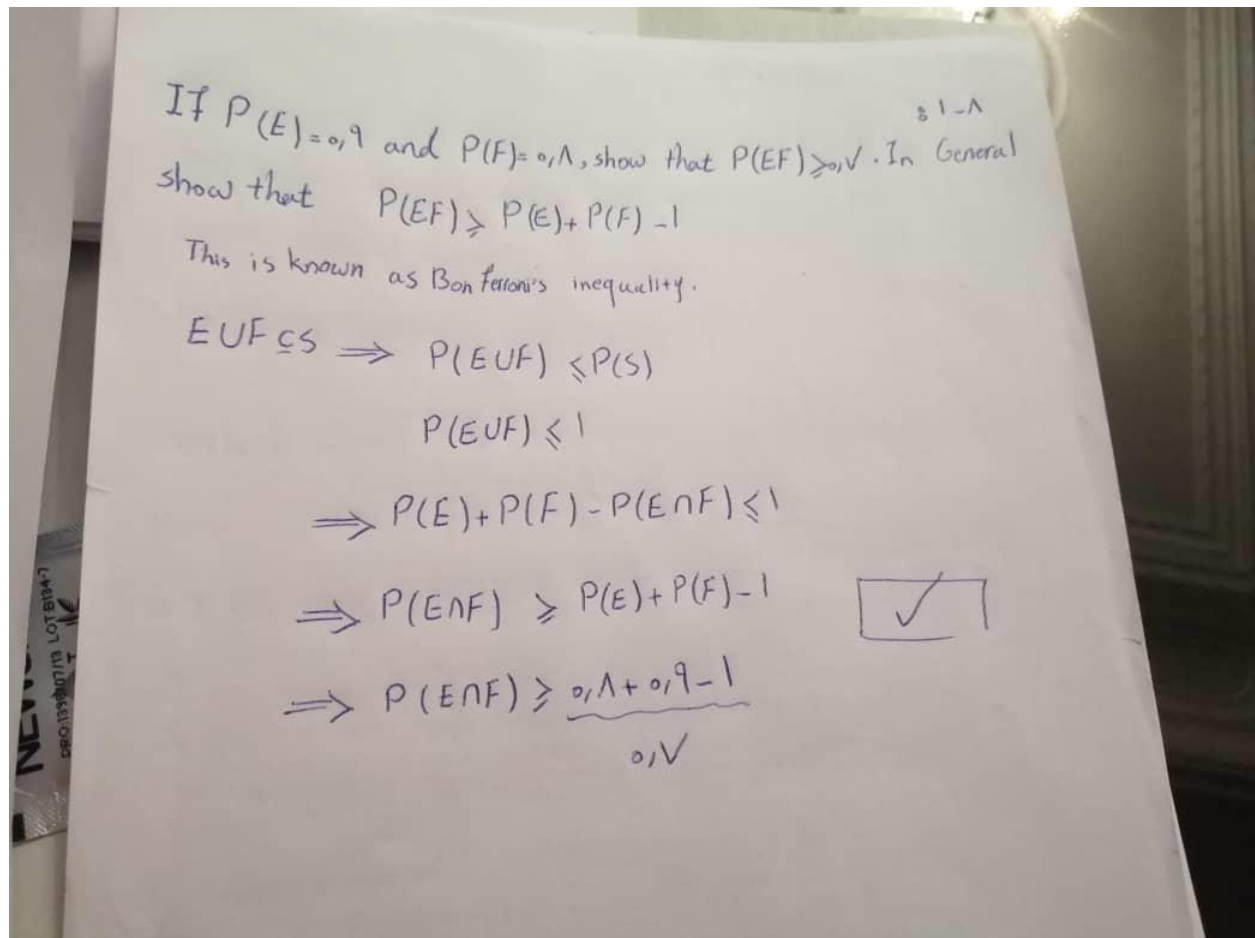 ۱-۸ :
If P(E)=۰,۹ and P(F)=۰,۸, show that P(EF)⩾۰,۷. In General
show that P(EF) ⩾ P(E)+P(F)-1
This is known as Bonferroni's inequality.
E∪F⊆S ⟹ P(E∪F) ⩽P(S)
P(E∪F) ⩽ 1
⟹ P(E)+P(F)-P(E∩F)⩽1
⟹ P(E∩F) ⩾ P(E)+P(F)-1 ✓
⟹ P(E∩F) ⩾ ۰,۸+۰,۹-1
۰,۷
LOT B134-7